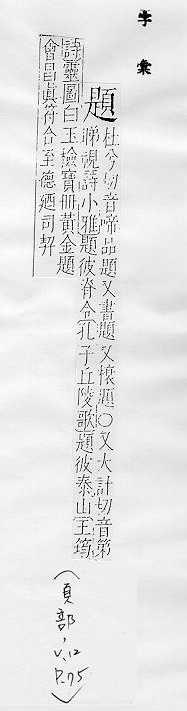 字彙
題
杜兮切音啼品題又書題又榱題○又大計切音第
睇視詩小雅題彼脊令孔子丘陵歌題彼泰山王筠
詩靈圖白玉檢寶冊黃金題
會昌眞符合至德廼司契
(頁部, V.12
P.75)